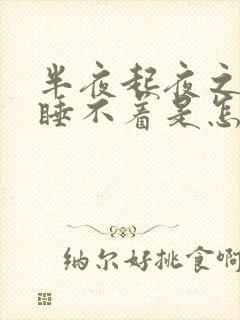 半夜起夜之
睡不着是怎
纳尔好挑食啊